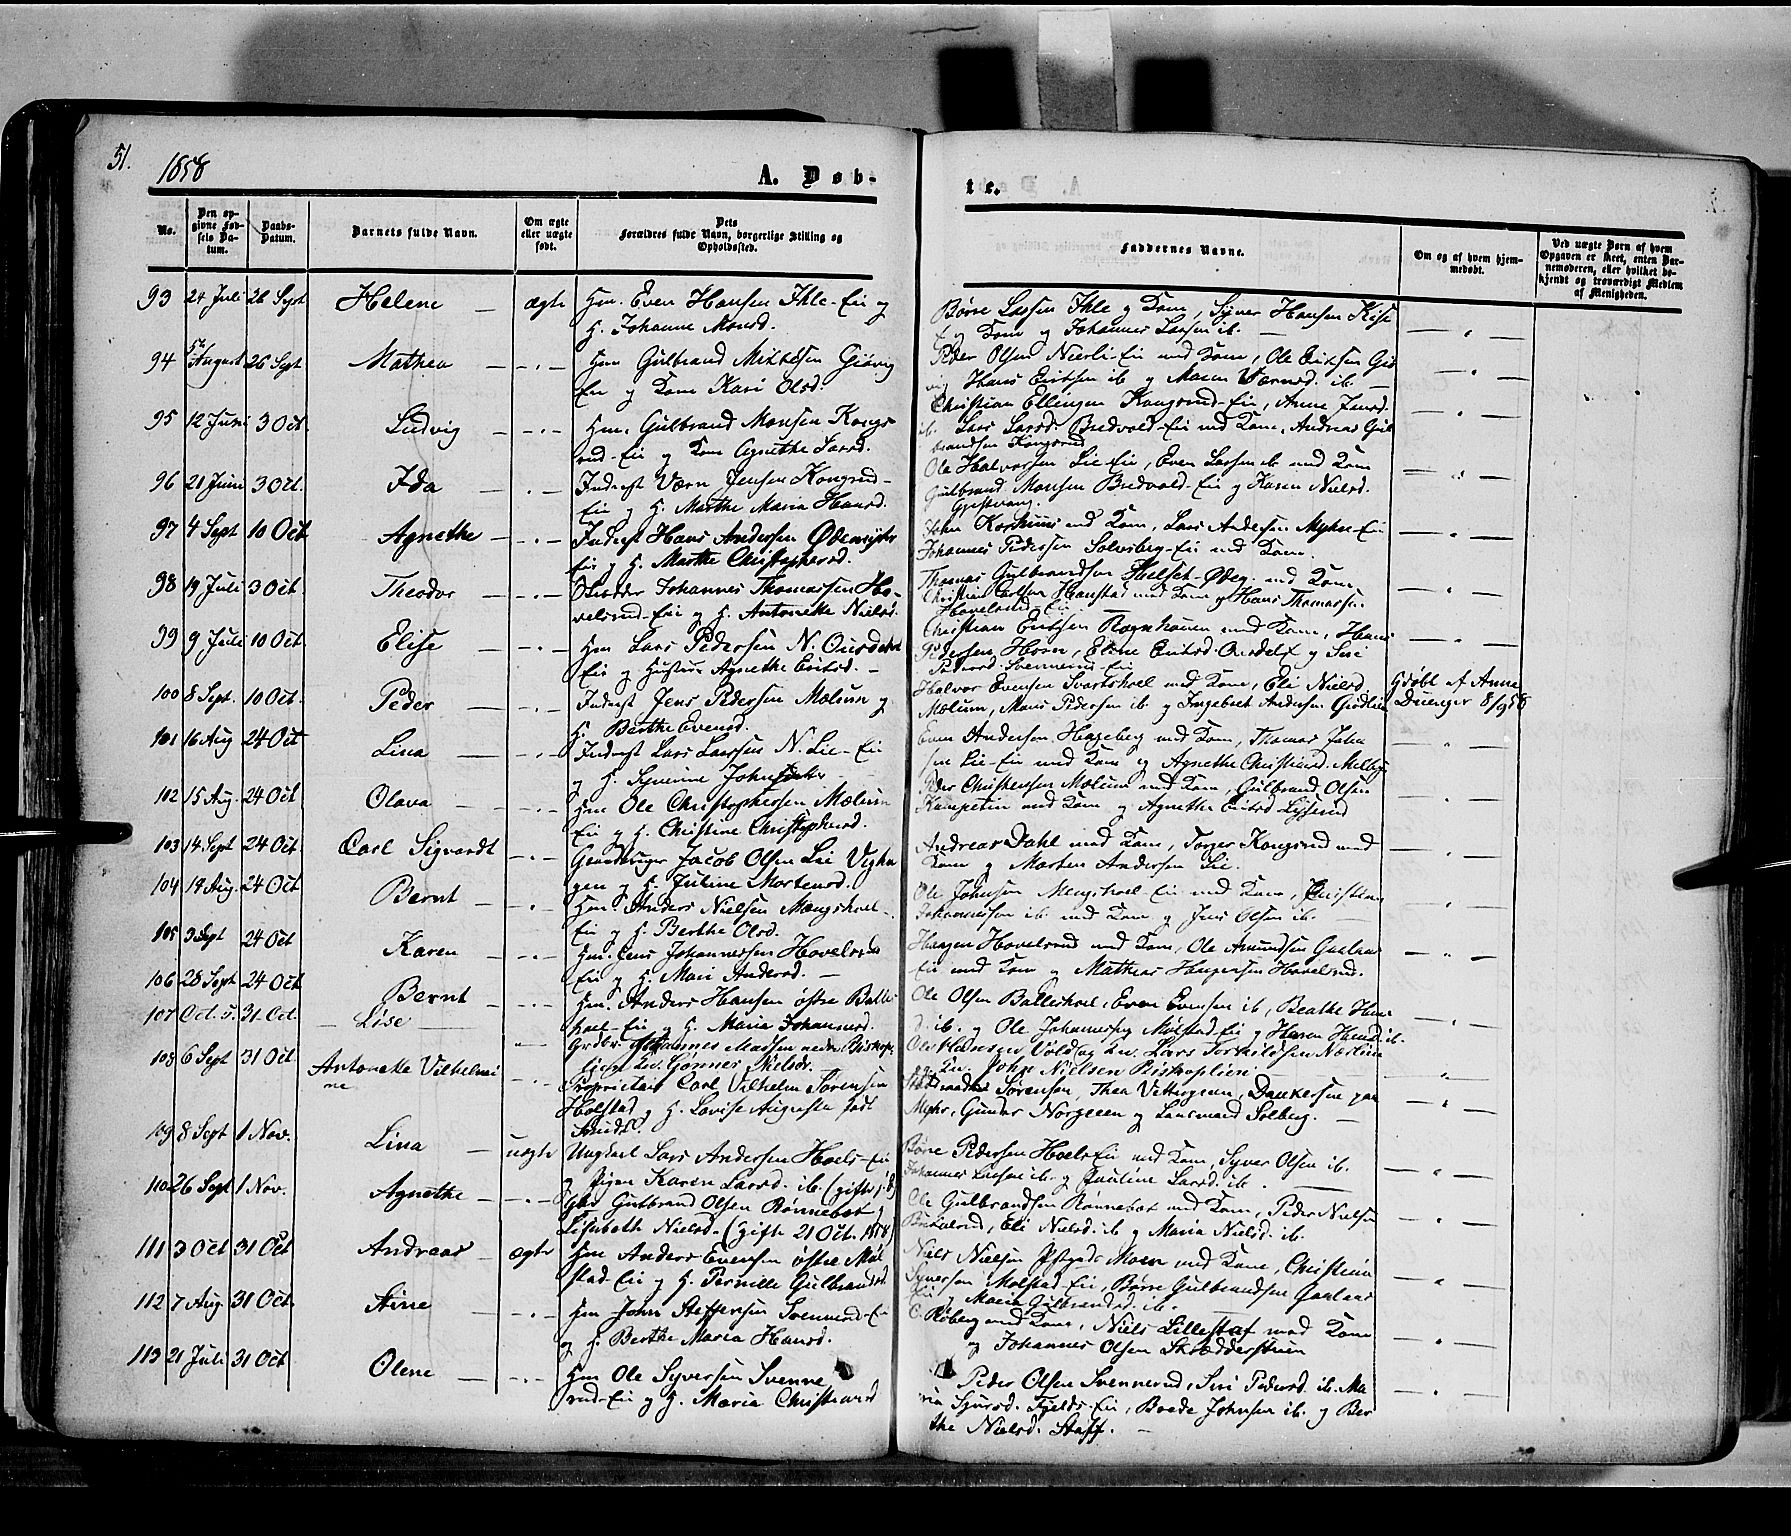 51.
1858
A. Døb-
te.
No.
Den op-
givne Fød-
sels Da-
tum.
Daabs-
Datum.
Barnets fulde Navn.
Om ægte
eller uægte
født.
Dets
Forældres fulde Navn, borgerlige Stilling og
Opholdssted.
Faddernes Navne.
Om og af hvem hjem-
medøbt.
Ved uægte Børn af hvem
Opgaven er skeet, enten Bar-
nemoderen, eller hvilket be-
kjendt og troværdigt Medlem
af Menigheden.
93 24 Juli 26 Sept Helene ægte Hm. Even Hansen Ihle-Eie og
H. Johanne Monsd.
Børre Larsen Ihle og Kone, Syver Hansen
og Kone og Johannes Larsen ib.
94 5te August 26 Sept Mathea Hm Gulbrand Mikkelsen Giøvig
Eie og Kone Kari Olsd.
Peder Olsen Nierli-Eie med Kone, Ole Eriksen Giø
vig Hans Eriksen ib og Maren ib.
95 12 Juni 3 Oct. Ludvig Hm. Gulbrand Monsen Kongs
rud-Eie og Kone Agnethe Larsd.
Christian Ellingsen Kongsrud-Eie, Anne Jensd.
ib. Lars Larsd. Bredvold-Eie med Kone, Andreas Gul
brandsen Kongsrud
96 21 Juni 3 Oct. Ida InderstVærn Jensen Kongsrud-
Eie og H. Marthe Maria Hansd.
Ole Halvorsen Lie-Eie, Even Larsen ib med Kone
Gulbrand Monsen Bredvold-Eie og Karen Nielsd.
97 4 Sept 10 Oct Agnethe Inderst Hans Andersen
Eie og H. Marthe Christophersd.
John med Kone, Lars Andersen Myhre-Eie
Johannes Pedersen Solvsberg-Eie med Kone.
98 19 Juli 3 Oct. Theodor Johannes Thomassen Ho-
velsrud-Eie og H. Antonette Nielsd.
Thomas Gulbrandsen Helset-Ødeg. med Kone
Christian Carlsen Hanstad med Kone og Hans Thomassen
Hovelsrud Eie
99 9 Juli 10 Oct. Elise Hm Lars Pedersen N. Ousdahl
Eie og Hustru Agnethe Eriksd.
Christian Eriksen Rognhougen med Kone, Hans
Pedersen Horn, Eline Eriksd. og Siri
Pedersd. Svennerus-Eie
100 8 Sept. 10 Oct. Peder Inderst Jens Pedersen Mælum og
H. Berthe Evensd.
Halvor Evensen Svartshoel med Kone, Eli Nielsd.
Mælum, Mons Pedersen ib. og Ingebret Andersen
Gdøbt af Anne
8/9 58
101 16 Aug 24 Oct Lina Inderst Lars Larsen N. Lie-Eie
og H. Syverine
Even Andersen Hageberg med Kone, Thomas Joha
sen Lie-Eie med Kone og Agnethe Christiansd. Melby
102 15 Aug. 24 Oct Olava Hm Ole Christophersen Mælum
Eie og H. Christine Christophersd.
Peder Christensen Mælum med Kone, Gulbrand Olsen
med Kone og Agnethe Eriksd
103 14 Sept 24 Oct. Carl Sigvardt Jacob Olsen Lie
gen og H. Juliane Mortensd.
Andreas Dahl med Kone, Torger Kongsrud med
Kone og Morten Andersen Lie.
104 19 Aug. 24 Oct Bernt Hm. Anders Nielsen Mængshoel-
Eie og H. Berthe Olsd.
Ole Johnsen Mengshoel-Eie med Kone, Christian
Johannessen ib. med Kone og Jens Olsen ib.
105 3 Sept 24 Oct Karen Hm. Jens Johannessen Hovelsrud
Eie og H. Mari Andersd.
Haagen Hovelsrud med Kone, Ole Amundsen Gaalaas
Eie med Kone og Mathias Haagensen Hovelsrud.
106 28 Sept 24 Oct Bernt Hm. Anders Hansen østre Balles
hoel-Eie og H. Maria Johannesd.
Ole Olsen Balleshoel, Even Evensen ib, Beathe
d. ib. og Ole Johannessen Mølstad-Eie og ib.
107 Oct. 5. 31 Oct. Lise Johannes Madsen nedre
Nielsdr.
Ole Hansen og Kv. Lars Torkildsen
og Kv. John Nielsen
108 6 Sept 31 Oct Antonette Vilhelmi
ne Proprietair Carl Vilhelm Sørensen
Holstad og H. Lovise Augusta født
Sørensen, Thea Vettergreen, Dankersen paa
Myhr, Gunder Norgreen og Lensmand Solberg.
109 8 Sept 1 Nov. Lina uægte Ungkarl Lars Andersen Hoels-Eie
og Pigen Karen Larsd. ib.
Børre Pedersen Hoels-Eie med Kone, Syver Olsen ib.
Johannes Larsen ib og Pauline Larsd. ib.
110 26 Sept 1 Nov. Agnethe Gulbrand Olsen Rønnebæt og
Lisbeth Nielsd. (gifte 21 Oct. 1858)
Ole Gulbrandsen Rønnebæt med Kone, Peder Nielsen
Eli Nielsd. ib og Maria Nielsd. ib.
111 3 Oct 31 Oct Andreas ægte Hm Anders Evensen østre Møl
stad-Eie og H. Pernille Gulbrandsd.
Niels Nielsen Moen med Kone, Christian
Syversen Mølstad-Eie, Børre Gulbrandsen Gaalaas
Eie og Maria Gulbrandsd. ib.
112 7 Aug. 31 Oct. Stine Hm John Steffensen Svennerud-Eie
og H. Berthe Maria Hansd.
C. Røberg med Kone, Niels Lillestaf med Kone
og Johannes Olsen Skrædderstuen
113 21 Juli 31 Oct Olene Hm Ole Syversen Svenne
rud-Eie og H. Maria Christiansd
Peder Olsen Svennerud, Siri Pedersd. ib. Ma
ria Sjursd. Fjelds-Eie, Johnsen ib. og Ber
the Nielsd. Staff.